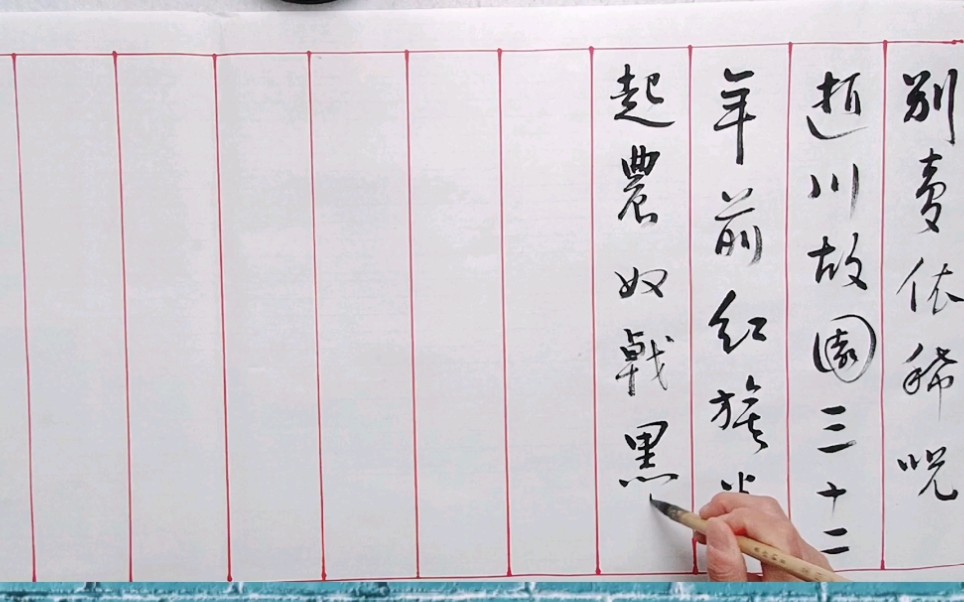 別夢依稀呪
逝川故園三十二
年前紅旗
起農奴戟黑